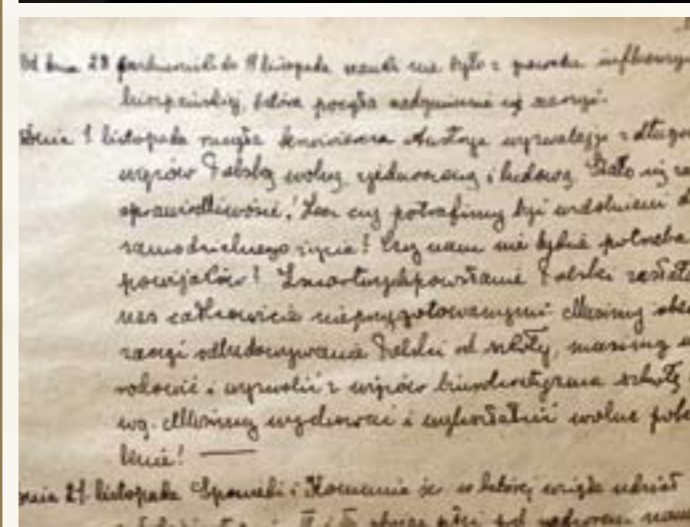 Od dnia 28 października do 11 listopada nauki nie było z powodu influency
hiszpańskiej, która poczęła nadzwyczajnie się szerzyć.
Dnia 1 listopada runęła Austrya z długo
więzów Polskę wolną, zjednoczoną i ludową. Stało się
sprawiedliwości! Lecz czy potrafimy być zdolnemi d
samodzielnego życia? Czy nam nie będzie potrzeba
powijaków? Zmartwychpowstanie Polski zastało
nas całkowicie nieprzygotowanymi. Musimy obe
zacząć odbudowywanie Polski od szkoły, musimy
i wyzwolić z więzów biurokratyzmu szkołę
wą. Musimy wychować i wykształcić wolne poko
lenie! —
Dnia 21 listopada Spowiedź i Komunia św. w której wzięła udział